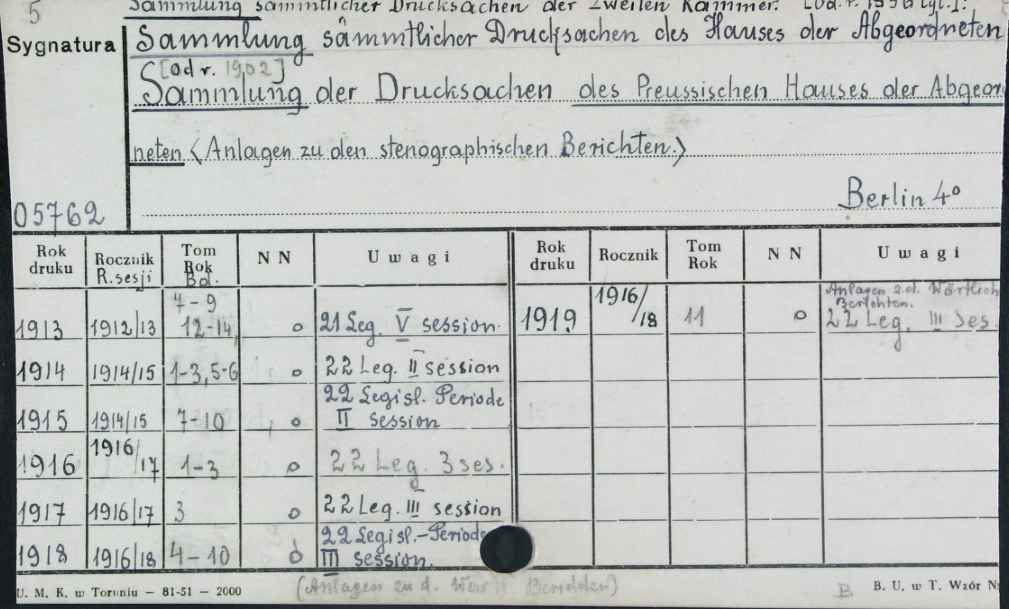 5
Sammlung sämmtlicher Drucksachen der Zweiten Kammer.
Sygnatura
Sammlung sämmtlicher Drucksachen des Hauses der Abgeordneten
[Od r. 1902]
Sammlung der Drucksachen des Preussischen Hauses der Abgeor
neten <Anlagen zu den stenographischen Berichten.>
Berlin 4º
05762
Rok druku Rocznik R. sesji Tom Rok Bd. N N Uwagi Rok druku Rocznik Tom Rok N N Uwagi
1913 1912/13 7-9 12-14, o 21 Leg. V session. 1919 1916/18 11 o Anlagen z.d. Wörtlich Berichten. 22 Leg. III ses.
1914 1914/15 1-3, 5-6 o 22 Leg. II session
1915 1914/15 7-10 o 22 Legisl. Periode II session
1916 1916/17 1-3 o 22 Leg. 3 ses.
1917 1916/17 3 o 22 Leg. III session
1918 1916/18 4-10 o 22 Legisl.-Periode III session.
(Anlagen zu d. Berichten)
U. M. K. w Toruniu — 81-51 — 2000
B.
B. U. w T. Wzór N